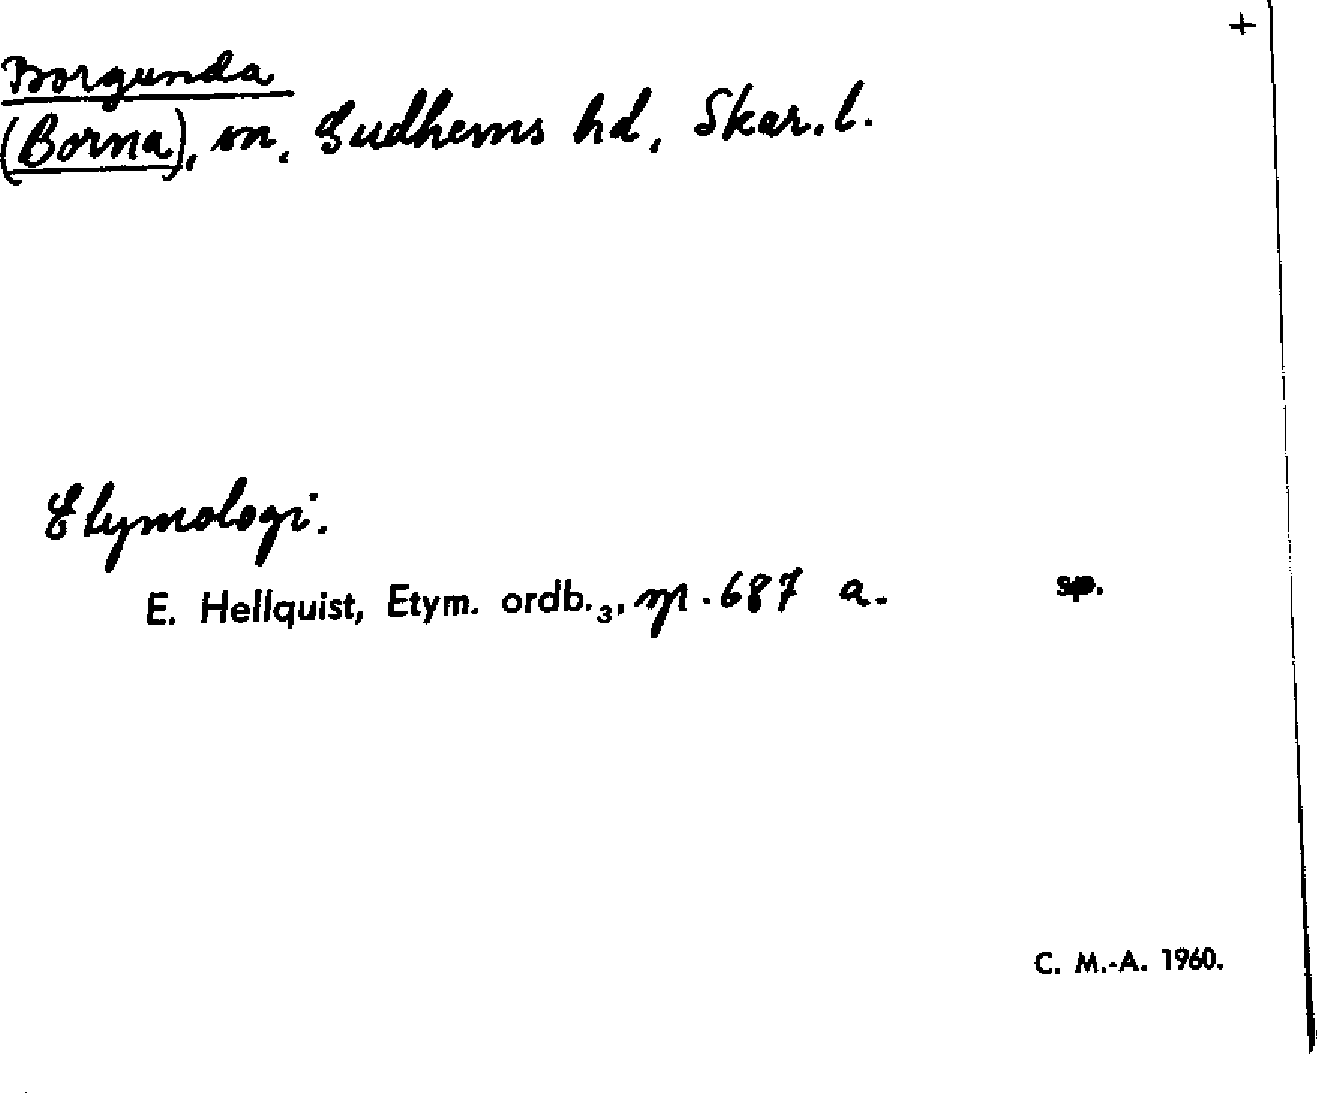 +
Borgunda
(Borna), sn, Gudhems hd, Skar. l.
Etymologi.
E. Hellquist, Etym. ordb.₃, p. 687 a. sp.
C. M.-A. 1960.